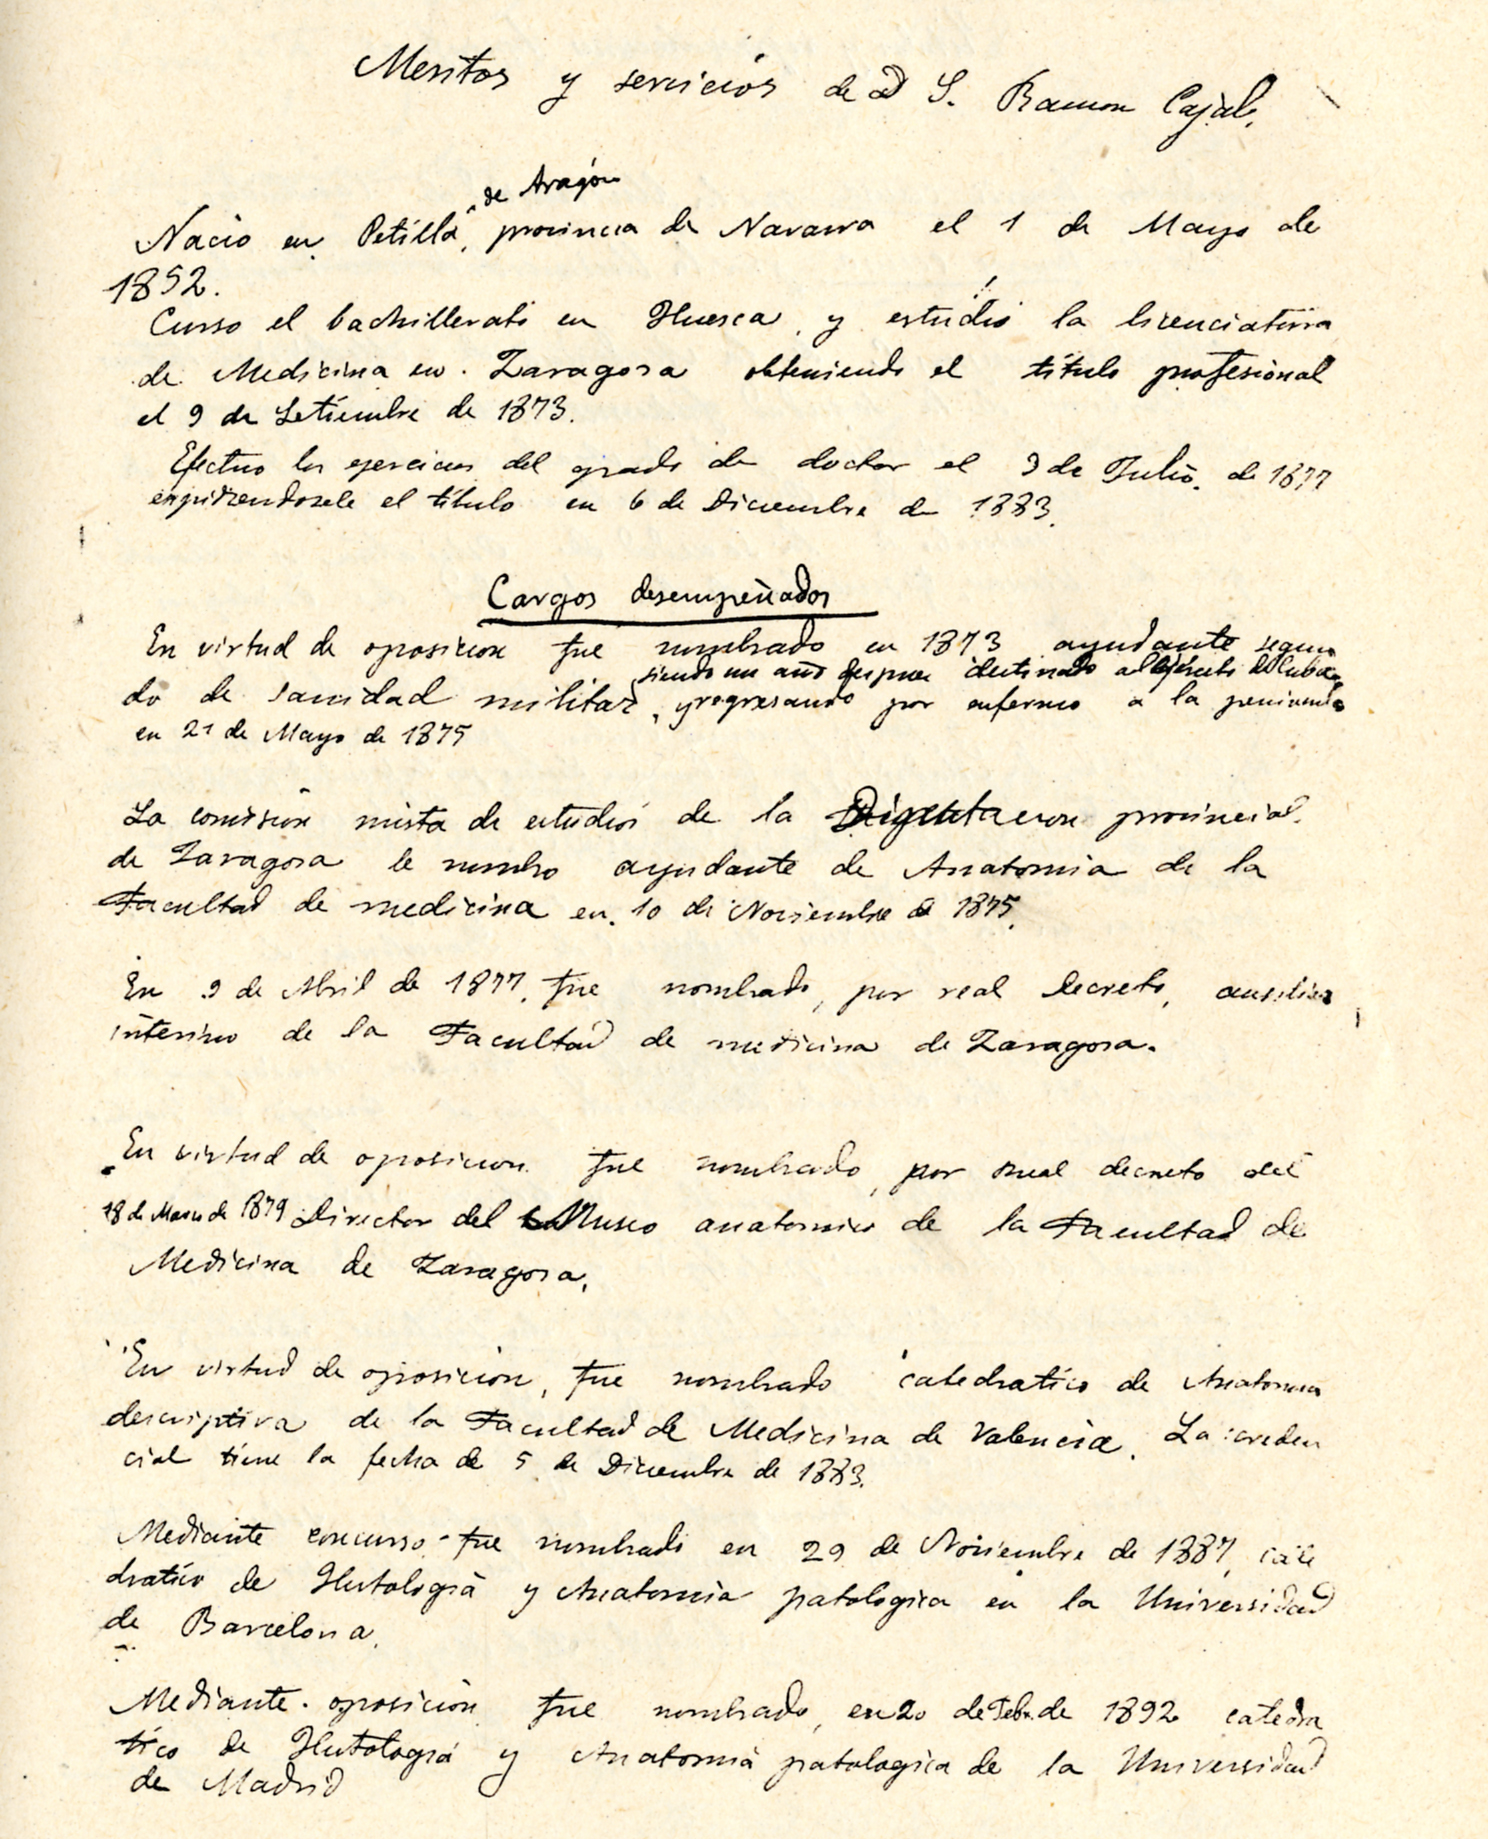 Meritos y servicios de D S. Ramon Cajal.
de Aragón
Nacio en Petilla, provincia de Navarra el 1 de Mayo de
1852.
Curso el bachillerato en Huesca, y estudió la licenciatura
de Medicina en Zaragoza obteniendo el título profesional
el 9 de Setiembre de 1873.
Efectuo los ejercicios del grado de doctor el 9 de Julio de 1877
expidiendosele el título en 6 de Diciembre de 1883.
Cargos desempeñados
En virtud de oposicion fue nombrado en 1873 ayudante segun
siendo un año despues destinado al Ejército de Cuba
do de sanidad militar, y regresando por enfermo a la peninsula
en 21 de Mayo de 1875
La comision mista de estudios de la Diputacion provincial
de Zaragoza le nombro ayudante de Anatomia de la
Facultad de medicina en 10 de Noviembre de 1875.
En 9 de Abril de 1877, fue nombrado, por real decreto, ausiliar
interino de la Facultad de medicina de Zaragoza.
En virtud de oposicion fue nombrado, por real decreto del
18 de Marzo de 1879 Director del Museo anatomico de la Facultad de
Medicina de Zaragoza.
En virtud de oposicion, fue nombrado catedratico de Anatomia
descriptiva de la Facultad de Medicina de Valencia. La creden
cial tiene la fecha de 5 de Diciembre de 1883.
Mediante concurso fue nombrado en 29 de Noviembre de 1887, cate
dratico de Histologia y Anatomia patologica en la Universidad
de Barcelona.
Mediante oposicion fue nombrado, en 20 de Febr. de 1892 catedra
tico de Histologia y Anatomia patologica de la Universidad
de Madrid